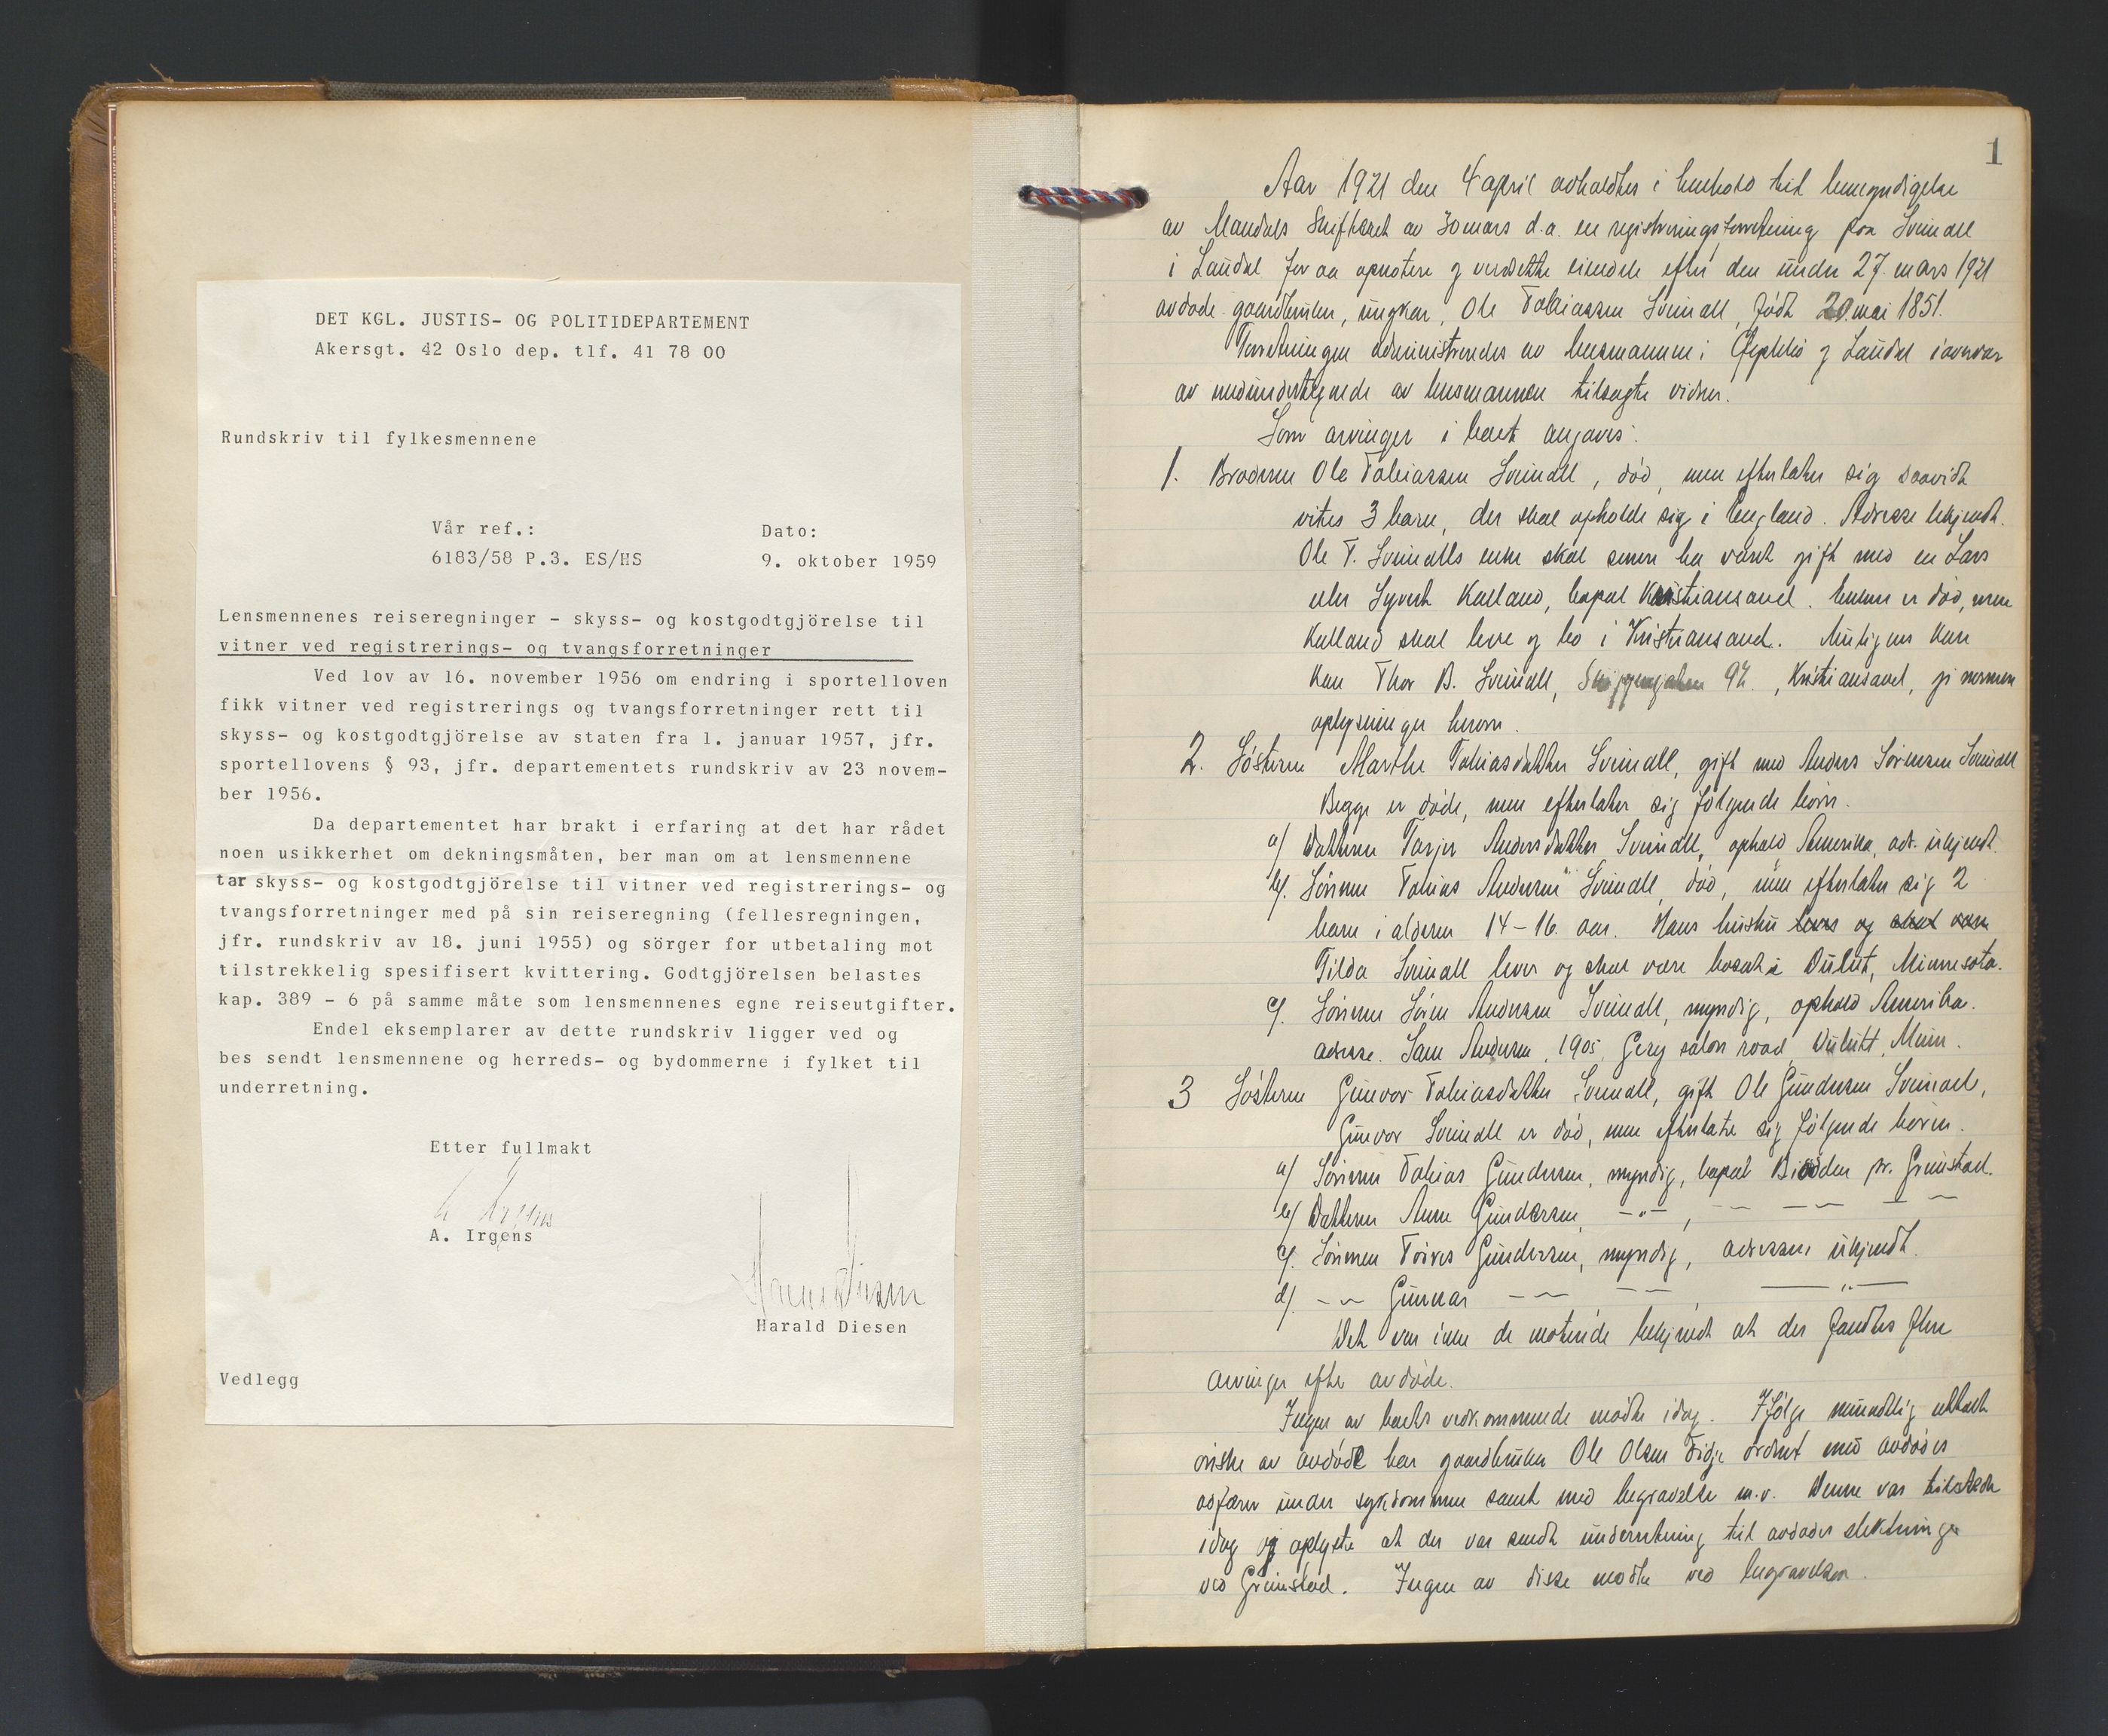 DET KGL. JUSTIS- OG POLITIDEPARTEMENT
Akersgt. 42 Oslo dep. tlf. 41 78 00
Rundskriv til fylkesmennene
Vår ref.: Dato:
6183/58 P.3. ES/HS 9. oktober 1959
Lensmennenes reiseregninger - skyss- og kostgodtgjörelse til
vitner ved registrerings- og tvangsforretninger
Ved lov av 16. november 1956 om endring i sportelloven
fikk vitner ved registrerings og tvangsforretninger rett til
skyss- og kostgodtgjörelse av staten fra 1. januar 1957, jfr.
sportellovens § 93, jfr. departementets rundskriv av 23 novem-
ber 1956.
Da departementet har brakt i erfaring at det har rådet
noen usikkerhet om dekningsmåten, ber man om at lensmennene
tar skyss- og kostgodtgjörelse til vitner ved registrerings- og
tvangsforretninger med på sin reiseregning (fellesregningen,
jfr. rundskriv av 18. juni 1955) og sörger for utbetaling mot
tilstrekkelig spesifisert kvittering. Godtgjörelsen belastes
kap. 389 - 6 på samme måte som lensmennenes egne reiseutgifter.
Endel eksemplarer av dette rundskriv ligger ved og
bes sendt lensmennene og herreds- og bydommerne i fylket til
underretning.
Etter fullmakt
A. Irgens
Harald Diesen
Vedlegg
1
Aar 1921 den 4 april avholdtes i henhold til bemyndigelse
av Mandals Skifteret av 30 mars d.a. en registreringsforretning paa Sveindll
i Laudal for aa opnotere og verdsette eiendele efter den under 27. mars 1921
avdøde gaardbruker, ungkar, Ole Tobiassen Sveindll, født 20. mai 1851.
Forretningen administreredes av lensmannen i Øyslebø og Laudal i overvær
av medundertegnede av lensmannen tilsagte vidner.
Som arvinger i boet angaves:
1. Broderen Ole Tobiassen Sveindll, død, men efterlater sig saavidt
vites 3 barn, der skal opholde sig i England. Adresse ukjendt.
Ole T. Sveindlls enke skal senere ha været gift med en Lars
eller Syvert Kalland, bopæl Kristiansand. Enken er død, men
Kalland skal leve og bo i Kristiansand. Muligens kan
Thor B. Sveindll, 92., Kristiansand, gi nermere
oplysninger herom.
2. Søsteren Marthe Tobiasdatter Sveindll, gift med Anders Sørensen Sveindll
Begge er døde, men efterlater sig følgende børn.
a/ Datteren Tarjer Andersdatter Sveindll, ophold Amerika, adr. ukjendt.
b/. Sønnen Tobias Andersen Sveindll, død, men efterlater sig 2
barn i alderen 14-16. aar. Hans hustru og
Tilda Sveindll lever og skal være bosat i Dulut, Minnesota.
c/. Sønnen Søren Andersen Sveindll, myndig, ophold Amerika.
adresse. Sam Andersen, 1905, road, Dulutt, Minn.
3 Søsteren Gunvor Tobiasdatter Sveindll, gift Ole Gundersen Sveindll,
Gunvor Sveindll er død, men efterlater sig følgende børn.
a/ Sønnen Tobias Gundersen, myndig, bopæl Biodden pr. Grimstad.
b/ Datteren Anne Gundersen, -"-, - - -
c/. Sønnen Gundersen, myndig, adressen ukjendt.
d/. - - Gunnar - - - - , -"-
Det var ikke de møtende bekjendt at der fandtes flere
arvinger efter avdøde.
Ingen av boets vedkommende møtte idag. Ifølge mundtlig uttalt
ønske av avdøde har gaardbruker Ole Olsen ordnet med avdødes
affærer under sykdommen samt med begravelse m.v. Denne var tilstede
idag og oplyste at der var sendt underretning til avdødes slektninger
ved Grimstad. Ingen av disse møtte ved begravelsen.